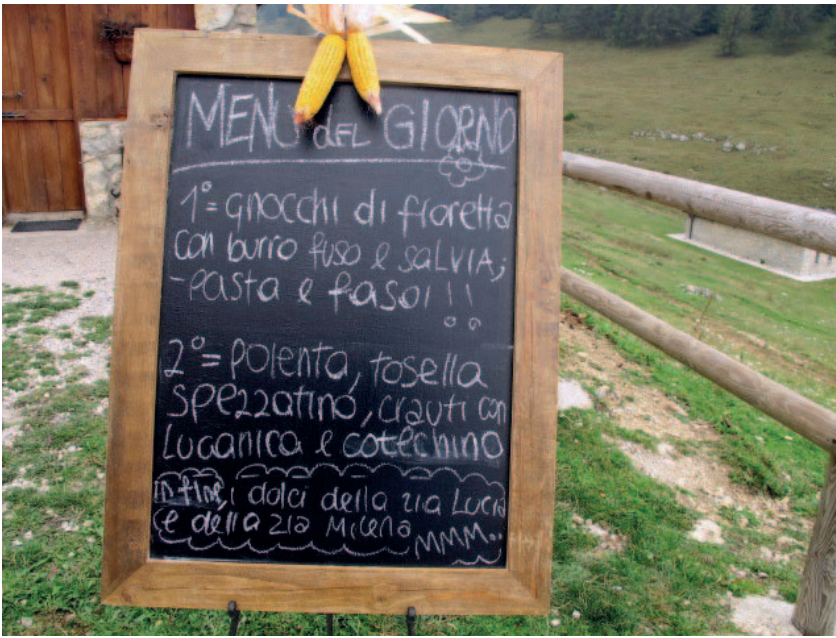 MENÙ DEL GIORNO
1°= gnocchi di fioretta
con burro fuso e SALVIA;
-pasta e fasoi!!
2°= POLENTA, tosella
SPEZZATINO, crauti con
Lucanica e cotechino
infine, i dolci della zia Lucia
e della zia Milena MMM..